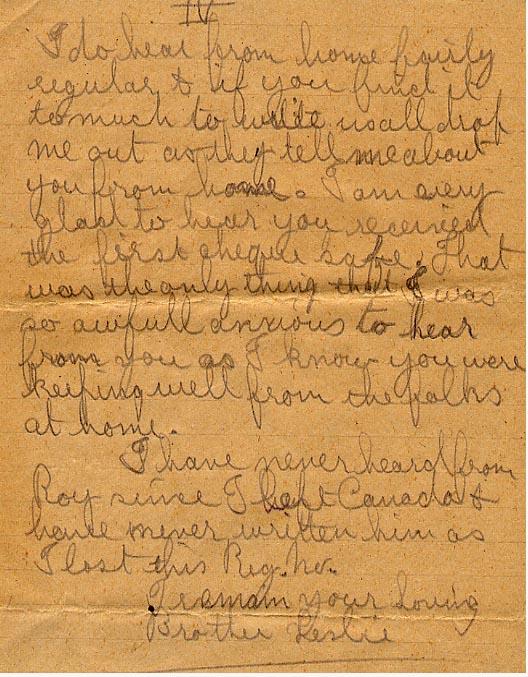 IV
I do hear from home fairly
regular & if you find it
to much to write us all drop
me out as they tell me about
you from home. I am very
glad to hear you received
the first cheque safe. That
was the only thing that I was
so awfull anxious to hear
from you as I know you were
keeping well from the folks
at home.
I have never heard from
Roy since I left Canada &
have never written him as
I lost his Reg. No.
I remain your loving
Brother Leslie